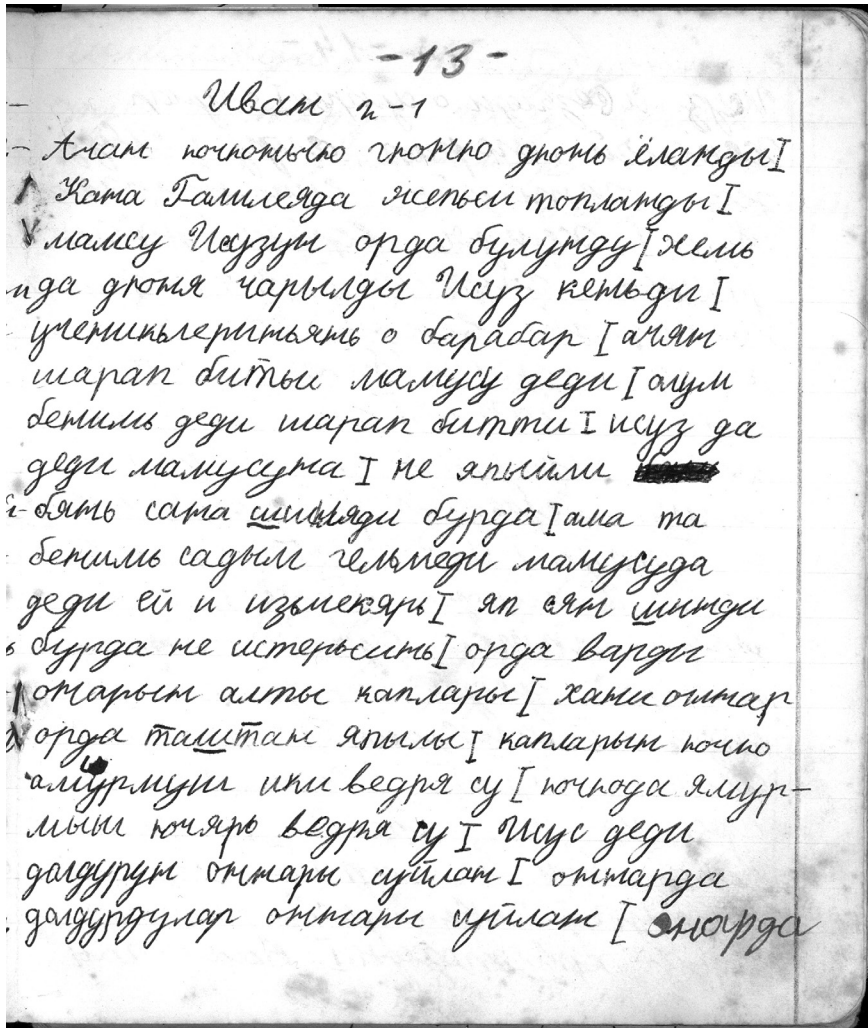 -13-
Иван п-1
Ачан ючюнчю гюнню дюнь ёланды I
Кана Галилеяда жепьси топланды I
мамсу Исузун орда булунду I хемь
да дюня чарылды Исуз кеньди I
ученикьлериньянь о барабар I ачян
шарап битьи мамусу деди I олум
бенимь деди шарап битти I исуз да
деди мамусуна I не япыйли
бянь сана шинди бурда I ама та
бенимь садым гельмеди мамусуда
деди ей и измекярь I яп сян шинди
бурда не истерьсинь I орда варды
онарын алты каплары I хани оннар
орда таштан япылы I капларын ючю
амурмуш ики ведря су I ючюда ямур-
мыш ючярь ведря су I Исус деди
долдурун оннары суйлан I оннарда
долдурдулар оннары суйлан I онарда